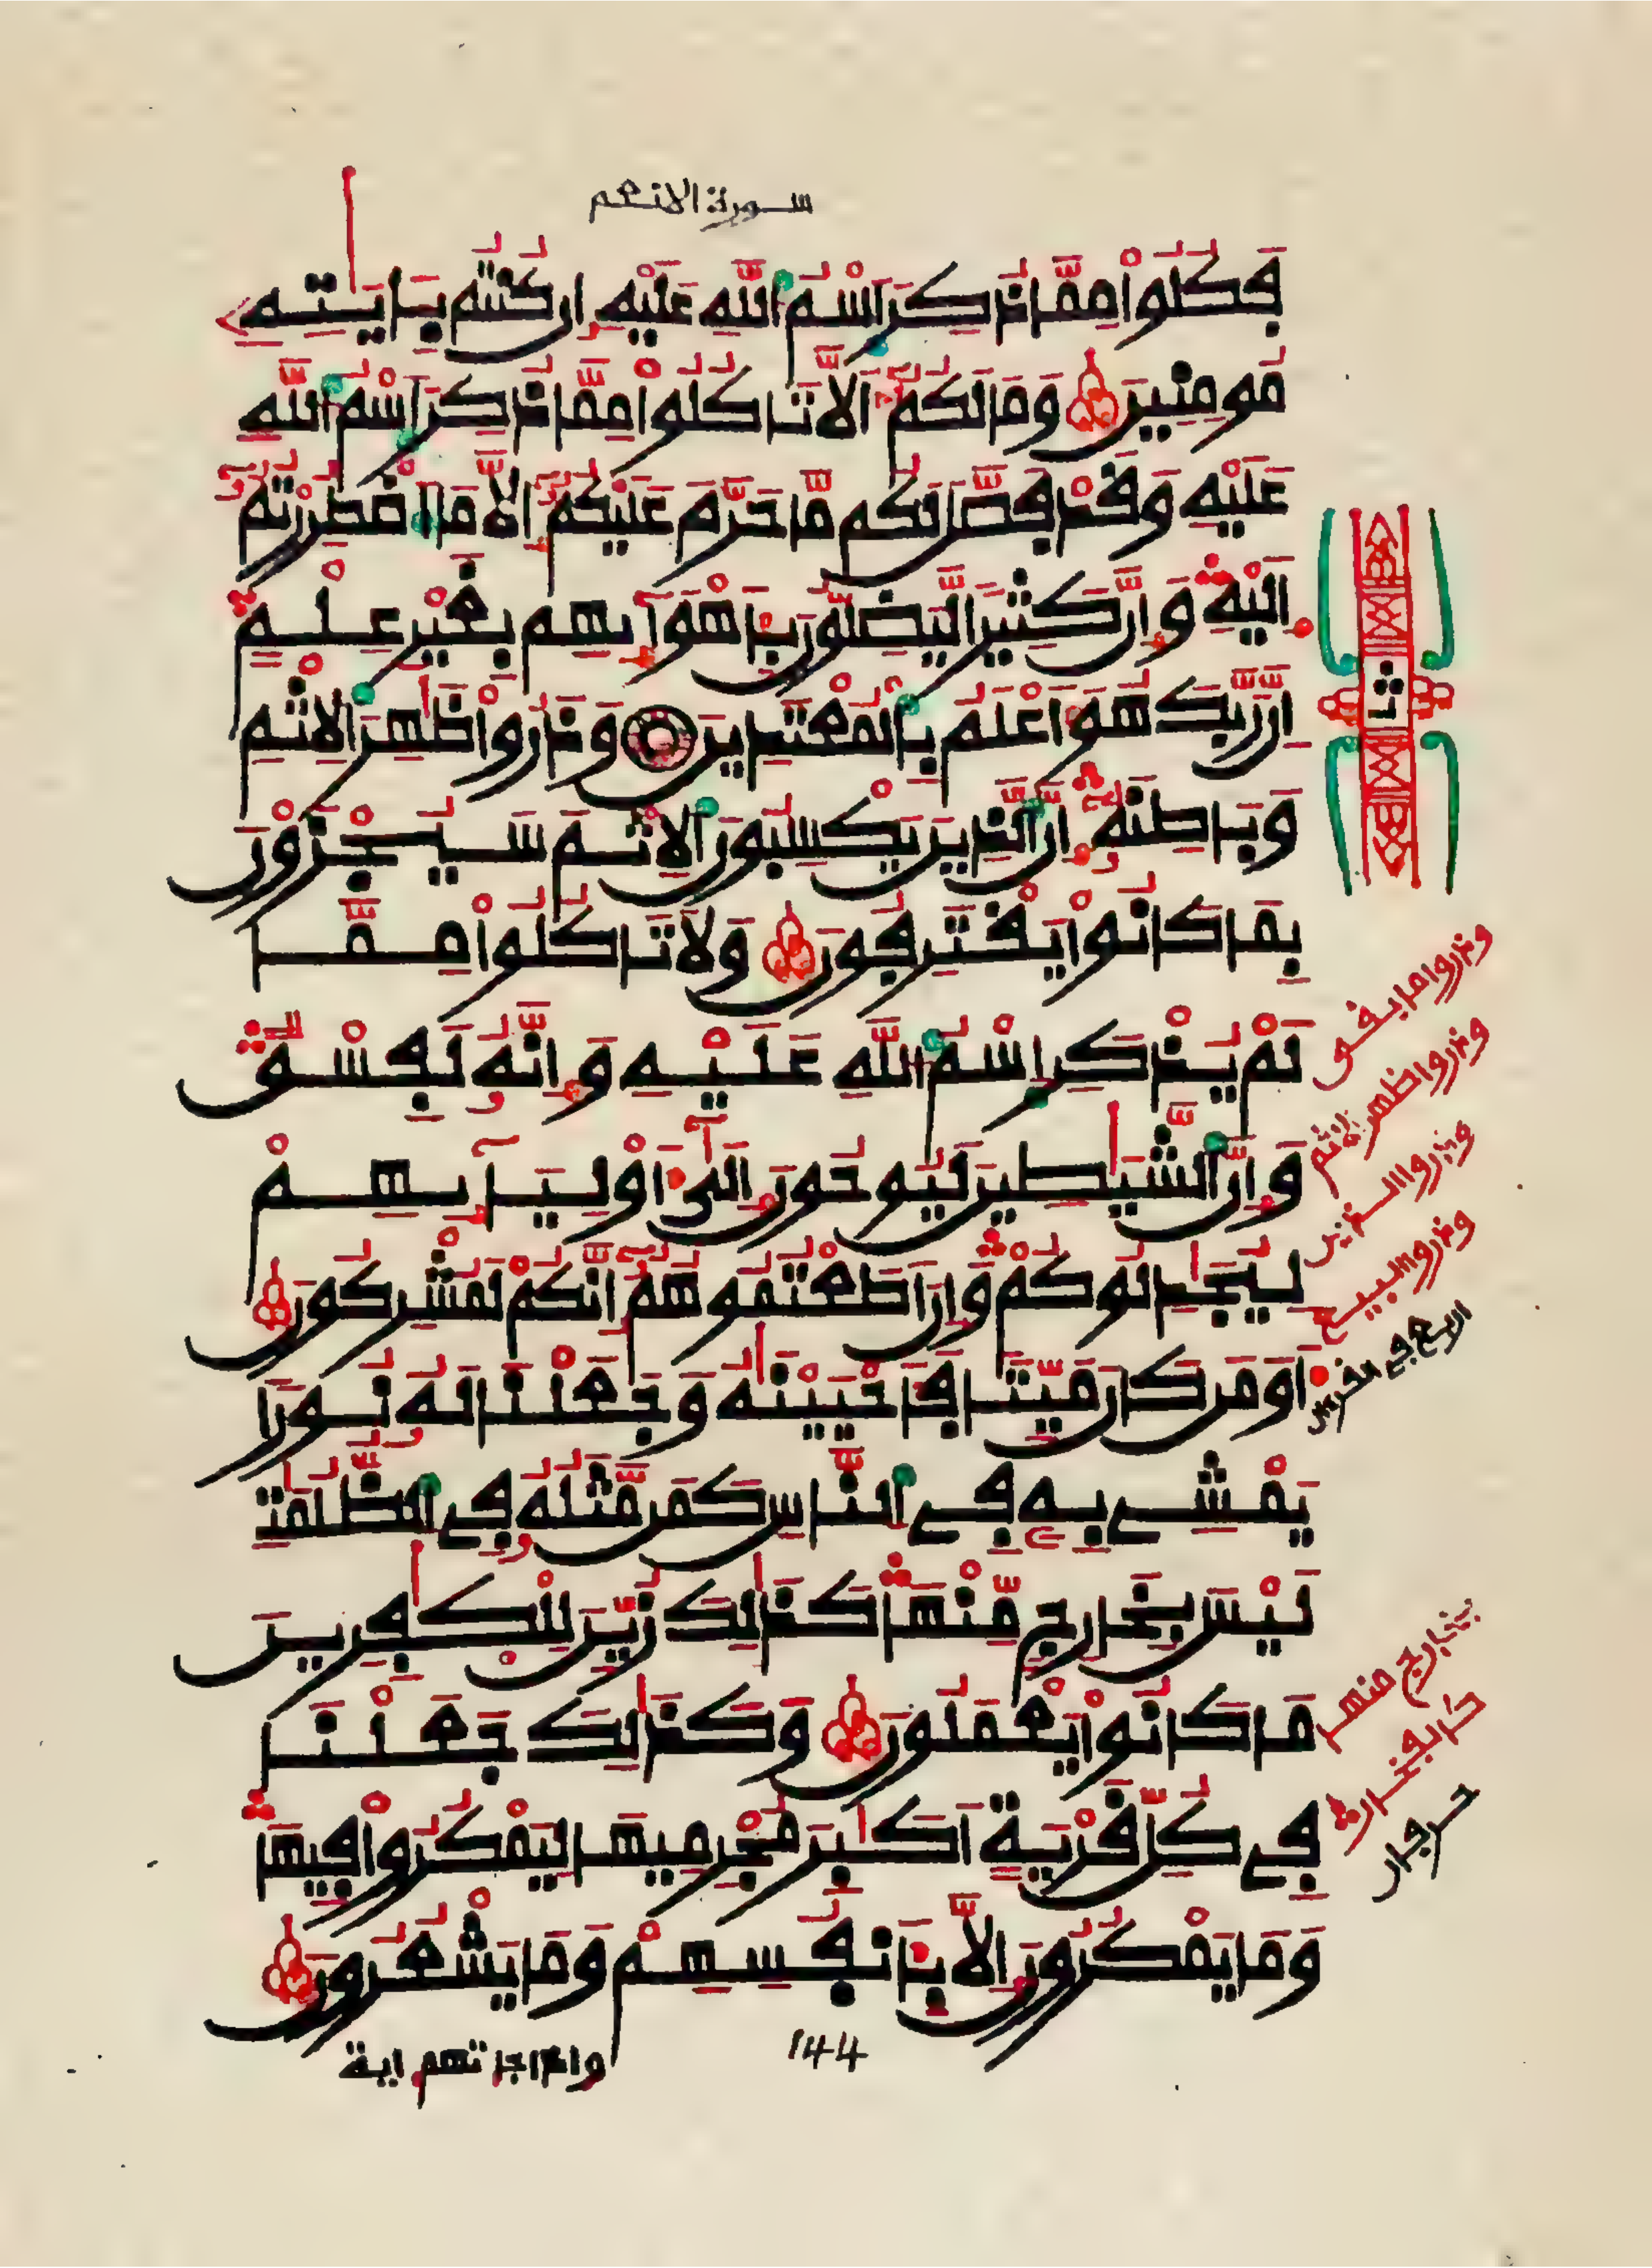 سورة الانعم
فَكُلُواْ مِمَّا ذُكِرَ اَسْمُ اُللَّهِ عَلَيْهِ إِن كُنتُم بِـَٔايَٰتِهِۦ
مُومِنِينَ وَمَا لَكُمُۥٓ أَلَّا تَاكُلُواْ مِمَّا ذُكِرَ اَسْمُ اُللَّهِ
عَلَيْهِ وَقَدْ فَصَّلَ لَكُم مَّا حَرَّمَ عَلَيْكُمُۥٓ إِلَّا مَا اَضْطُرِرْتُمُۥٓ
إِلَيْهِ وَإِنَّ كَثِيراً لَّيَضِلُّونَ بِأَهْوَآئِهِم بِغَيْرِ عِلْمٍ
إِنَّ رَبَّكَ هُوَ أَعْلَمُ بِالْمُعْتَدِينَ وَذَرُواْ ظَٰهِرَ اَلِاثْمِ
وَبَاطِنَهُۥٓ إِنَّ اَلذِينَ يَكْسِبُونَ اَلِاثْمَ سَيُجْزَوْنَ
بِمَا كَانُواْ يَقْتَرِفُونَ وَلَا تَاكُلُواْ مِمَّا
لَمْ يُذْكَرِ اِسْمُ اُللَّهِ عَلَيْهِ وَإِنَّهُۥ لَفِسْقٌ
وَإِنَّ اَلشَّيَٰطِينَ لَيُوحُونَ إِلَىٰٓ أَوْلِيَآئِهِمْ
لِيُجَٰدِلُوكُمْ وَإِنَ اَطَعْتُمُوهُمُۥٓ إِنَّكُمْ لَمُشْرِكُونَ
أَوَمَن كَانَ مَيِّتاً فَأَحْيَيْنَٰهُ وَجَعَلْنَا لَهُۥ نُوراً
يَمْشِے بِهِۦ فِے اِلنَّاسِ كَمَن مَّثَلُهُۥ فِے اِلظُّلُمَٰتِ
لَيْسَ بِخَارِجٍ مِّنْهَا كَذَٰلِكَ زُيِّنَ لِلْكَٰفِرِينَ
مَا كَانُواْ يَعْمَلُونَ وَكَذَٰلِكَ جَعَلْنَا
فِے كُلِّ قَرْيَةٍ أَكَٰبِرَ مُجْرِمِيهَا لِيَمْكُرُواْ فِيهَا
وَمَا يَمْكُرُونَ إِلَّا بِأَنفُسِهِمْ وَمَا يَشْعُرُونَ
وإذا جاءتهم اية
144
ثمن
وذروا ما بقى
وذروا ظهر الاثم
وذروا الذين
وذروا البيع
اربع في القرءان
بخارج منها